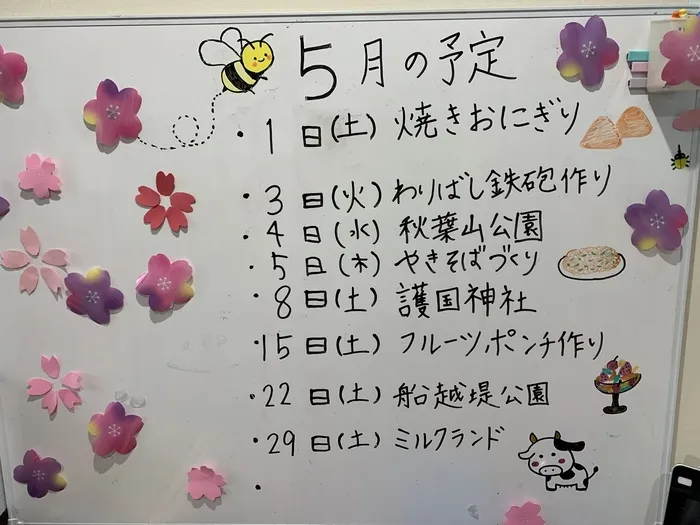 5月の予定
・1日(土) 焼きおにぎり
・3日(火) わりばし鉄砲作り
・4日(水) 秋葉山公園
・5日(木) やきそばづくり
・8日(土) 護国神社
・15日(土) フルーツポンチ作り
・22日(土) 船越堤公園
・29日(土) ミルクランド
・